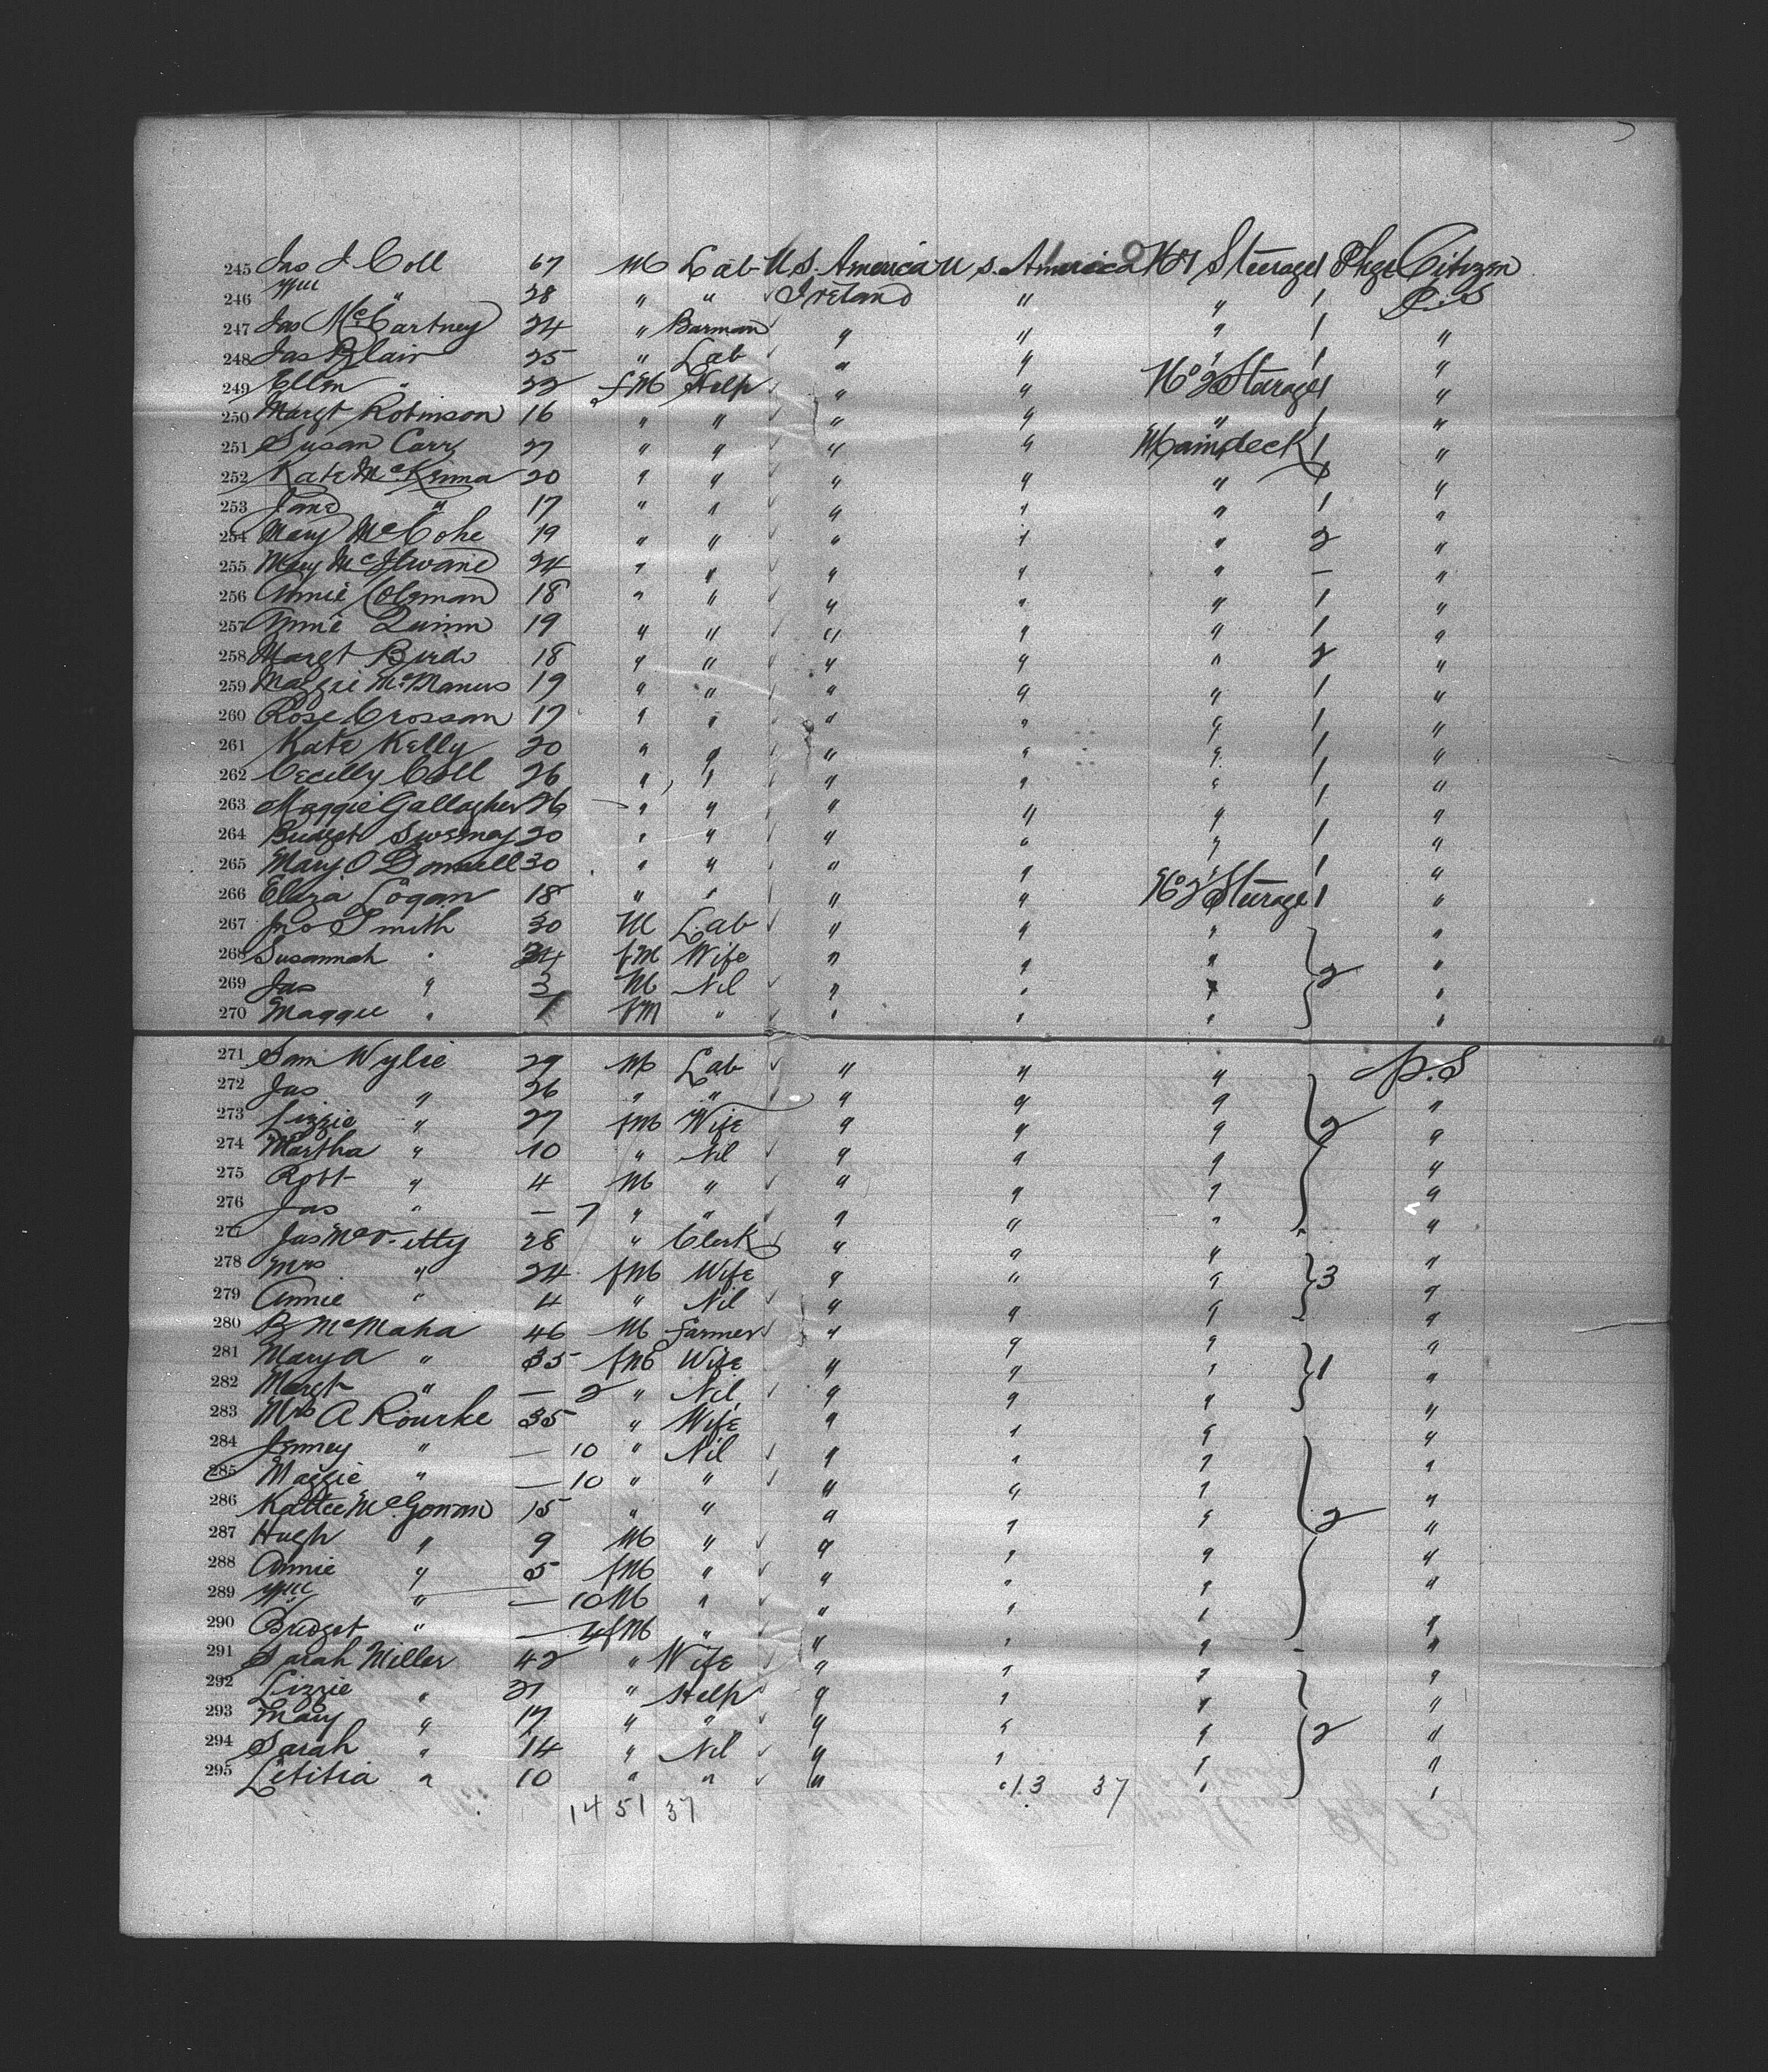 245 Jas J Coll 67 M Lab U S. America U S. America No 1 Steerage 1 Pkge Citizen
246 Wm " 28 " " Ireland " " 1 P.S
247 Jas McCartney 24 " Barman " " " 1 "
248 Jas Blair 25 " Lab " " " 1 "
249 Ellen " 22 fM Help " " No 2 Steerage 1 "
250 Margt Robinson 16 " " " " " 1 "
251 Susan Carr 27 " " " " Maindeck 1 "
252 Kate McKenna 20 " " " " " 1 "
253 Jane " 17 " " " " " 1 "
254 Mary McCohe 19 " " " " " 2 "
255 Mary McIlwaine 24 " " " " " — "
256 Annie Coleman 18 " " " " " 1 "
257 Annie Quinn 19 " " " " " 1 "
258 Margt Bird 18 " " " " " 2 "
259 Maggie McManus 19 " " " " " 1 "
260 Rose Crossan 17 " " " " " 1 "
261 Kate Kelly 20 " " " " " 1 "
262 Cecilly Coll 26 " " " " " 1 "
263 Maggie Gallagher 26 " " " " " 1 "
264 Bridget Sweeney 20 " " " " " 1 "
265 Mary O Donnell 30 " " " " " 1 "
266 Eliza Logan 18 " " " " No 2 Steerage 1 "
267 Jno Smith 30 M Lab " " " "
268 Susannah " 24 fM Wife " " " 2 "
269 Jas " 3 M Nil " " " "
270 Maggie " 1 fM " " " " "
271 Sam Wylie 29 M Lab " " " P.S
272 Jas " 26 " " " " " "
273 Lizzie " 27 fM Wife " " " 2 "
274 Martha " 10 " Nil " " " "
275 Robt " 4 M " " " " "
276 Jas " — 7 " " " " " "
277 Jas McVitty 28 " Clerk " " " "
278 Mrs " 24 fM Wife " " " 3 "
279 Annie " 4 " Nil " " " "
280 B McMaha 46 M Farmer " " " "
281 Mary A " 35 fM Wife " " " 1 "
282 Margt " — 2 " Nil " " " "
283 Mrs A Rourke 35 " Wife " " " "
284 Jenney " — 10 " Nil " " " "
285 Maggie " — 10 " " " " " "
286 Kattee McGowan 15 " " " " " 2 "
287 Hugh " 9 M " " " " "
288 Annie " 5 fM " " " " "
289 Wm " — 10 M " " " " "
290 Bridget " — 4 fM " " " " "
291 Sarah Miller 42 " Wife " " " - "
292 Lizzie " 21 " Help " " " "
293 Mary " 17 " " " " " 2 "
294 Sarah " 14 " Nil " " " "
295 Letitia " 10 " " " " 13 37 " "
14 51 37